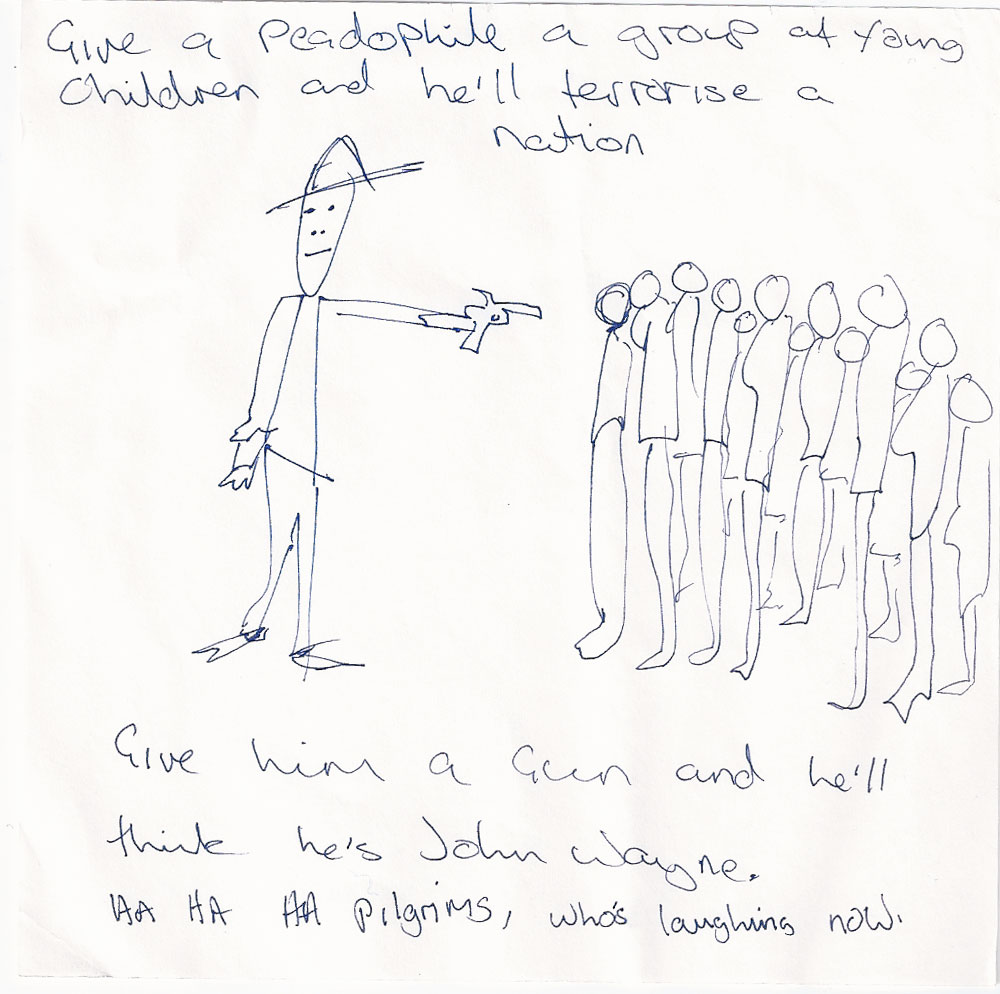 Give a Peadophile a group of Young
Children and he'll terrorise a
nation
Give him a Gun and he'll
think he's John Wayne.
HA HA HA pilgrims, who's laughing now.